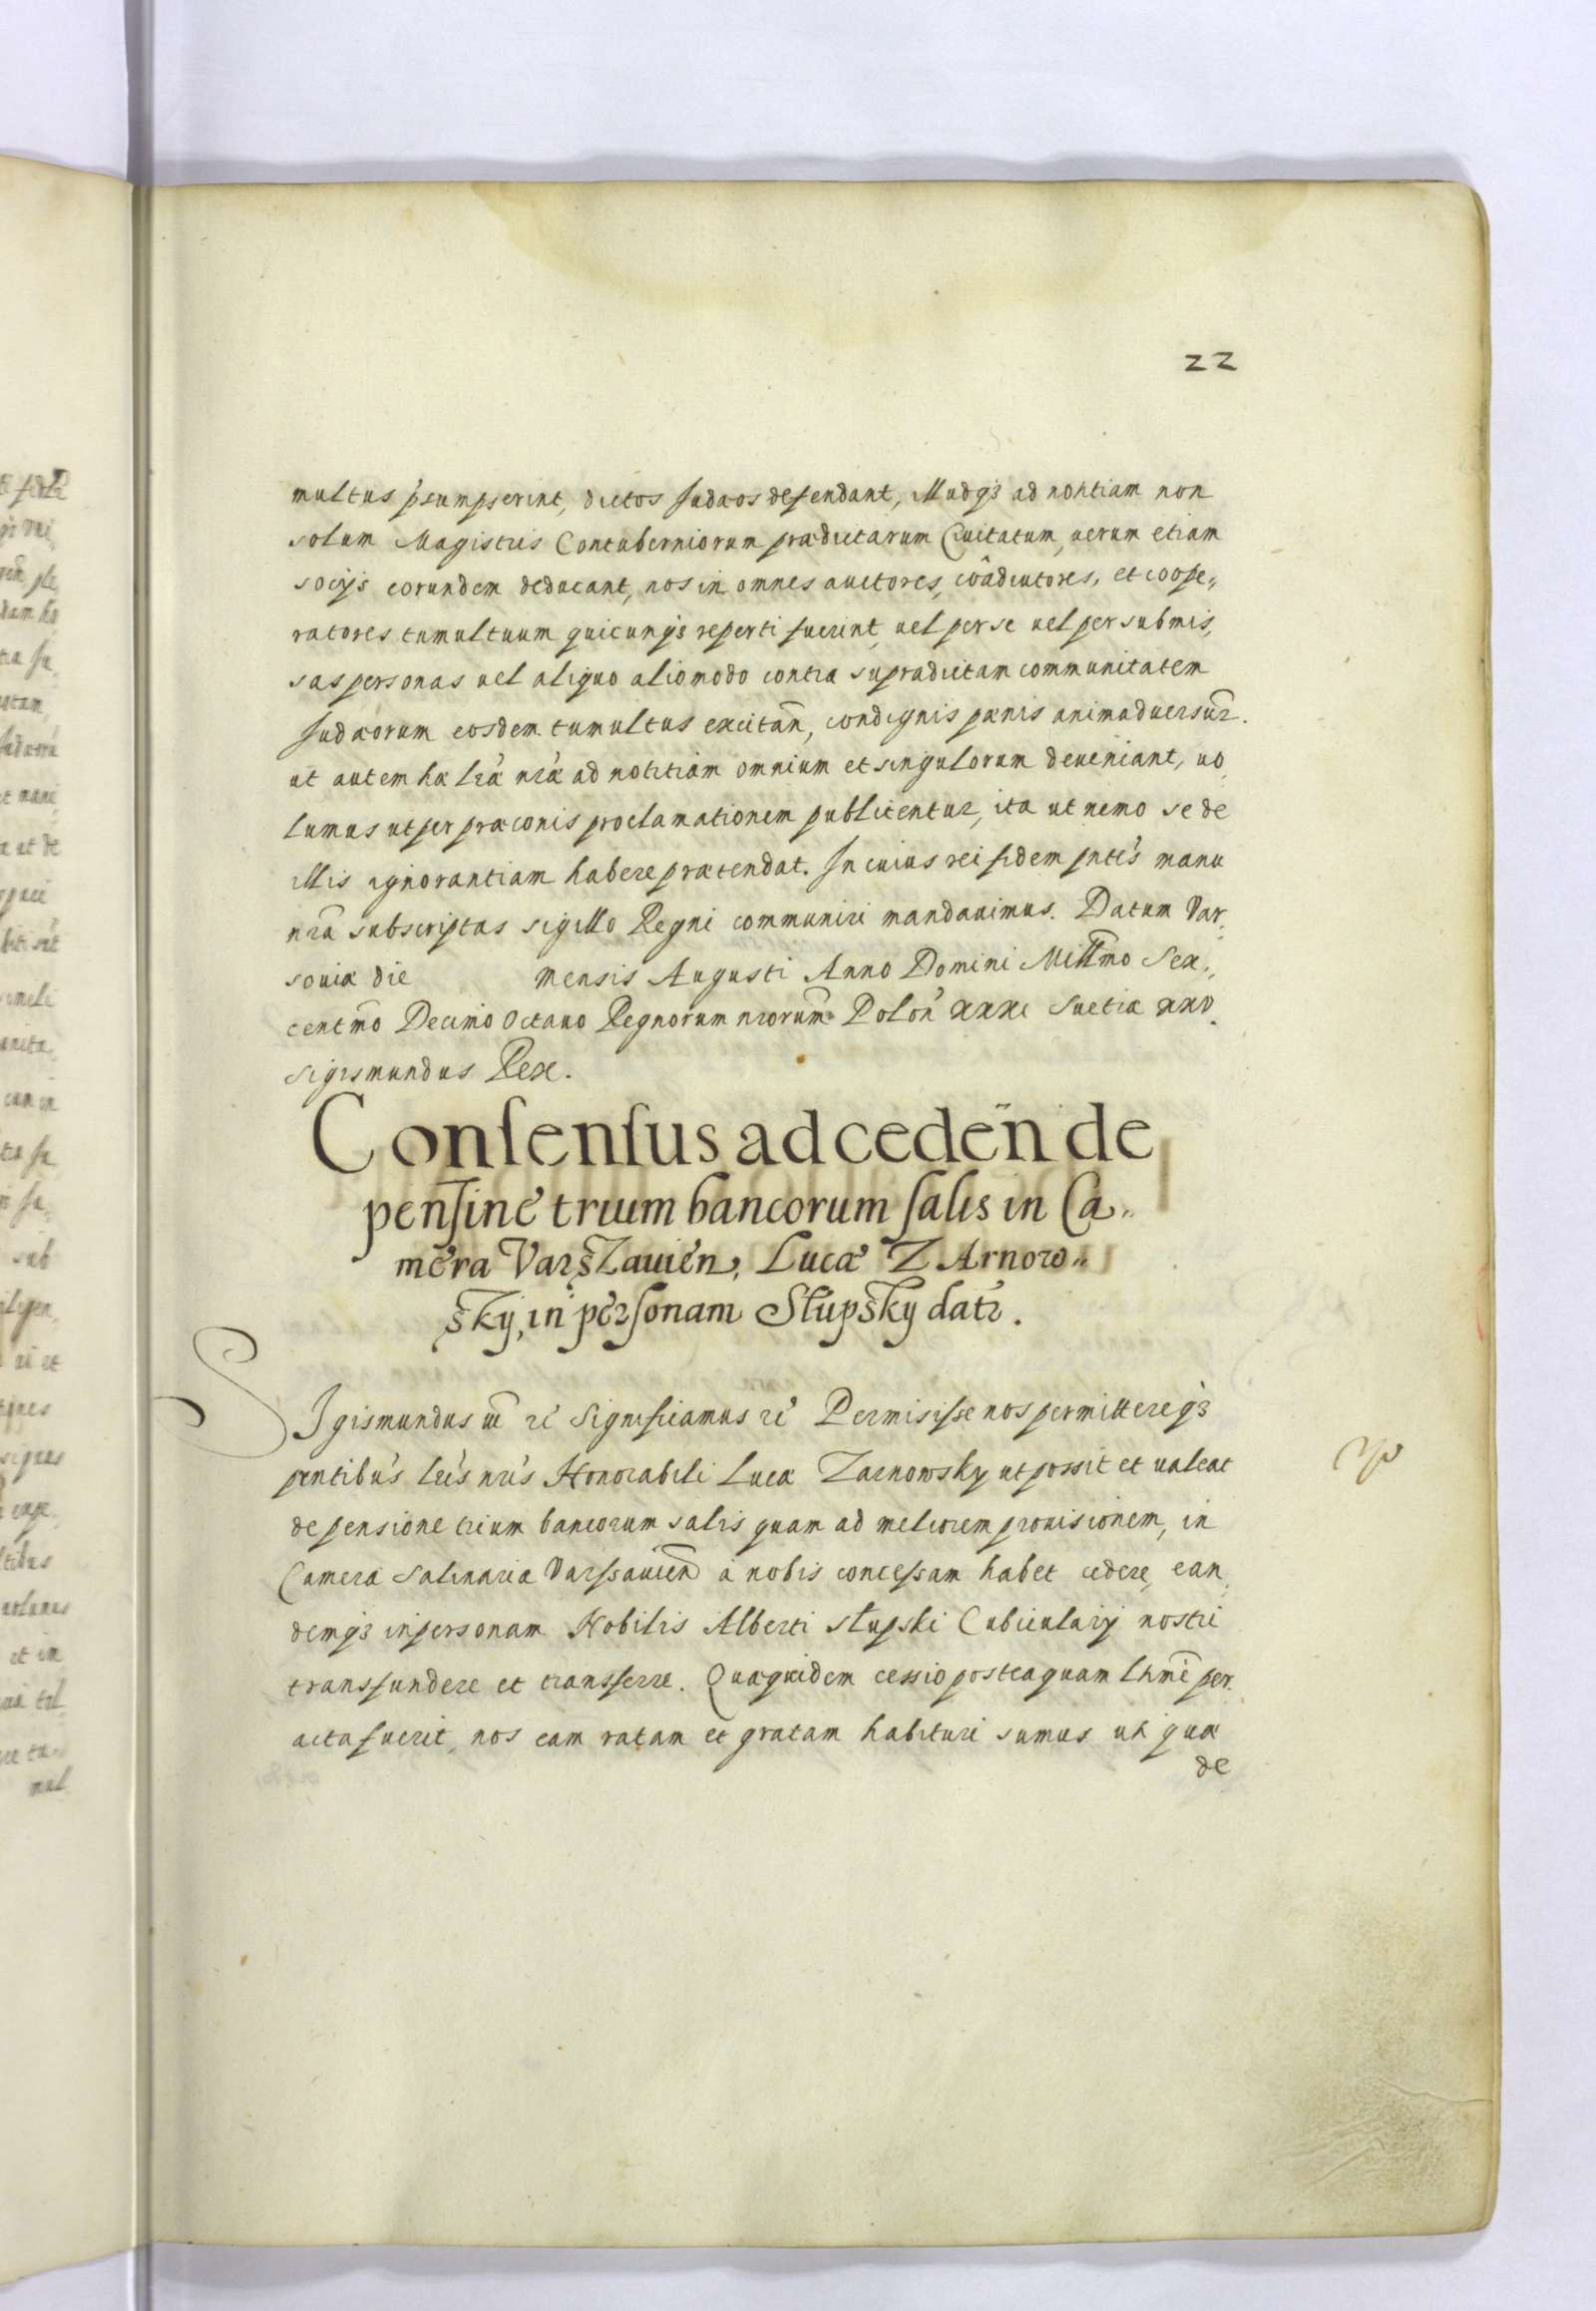 22
multus p̓sumpserint, dictos Judæos defendant, Illudq3 ad notitiam non
solum Magistris Contuberniorum prædictarum Civitatum, uerum etiam
socijs eorundem deducant, nos in omnes auctores, coâdiutores, et coope„
ratores tumultuum quicunq3 reperti fuerint, uel per se uel per submis,
sas personas uel aliquo alio modo contra supradictam communitatem
Judæorum eosdem tumultus excitañ, condignis pænis animaduersur̃.
ut autem hæ lr̃æ nr̃æ ad notitiam omnium et singulorum deueniant, uo„
lumus ut per præconis proclamationem publicentur, ita ut nemo se de
illis ignorantiam habere prætendat. In cuius rei fidem pntẽs manu
nr̃a subscriptas sigillo Regni communiri mandauimus. Datum Var„
souiæ die mensis Augusti Anno Domini Millm̃o Sex„
centm̃o Decimo Octauo Regnorum nrorum̃ Poloñ xxxi Suetiæ xxv.
Sigismundus Rex.
Consensus ad cedeñ de
pensine trium bancorum salis in Ca„
mera Varszauien, Lucæ Zarnow„
sky, in personam Słupsky datr̃.
Sigismundus iii̅ rc̓ Significamus rc̓ Permisisse nos permittereq3
pentibũs lrĩs nrĩs Honorabili Lucæ Zarnowsky ut possit et ualeat
de pensione trium bancorum salis quam ad meliorem prouisionem, in
Camera Salinaria Varssauieñ à nobis concessam habet cedere, ean„
demq3 in personam Nobilis Alberti Słupski Cubicularij nostri
transfundere et transferre. Quæquidem cessio posteaquam lt̃me per„
acta fuerit, nos eam ratam et gratam habituri sumus uti quæ
de